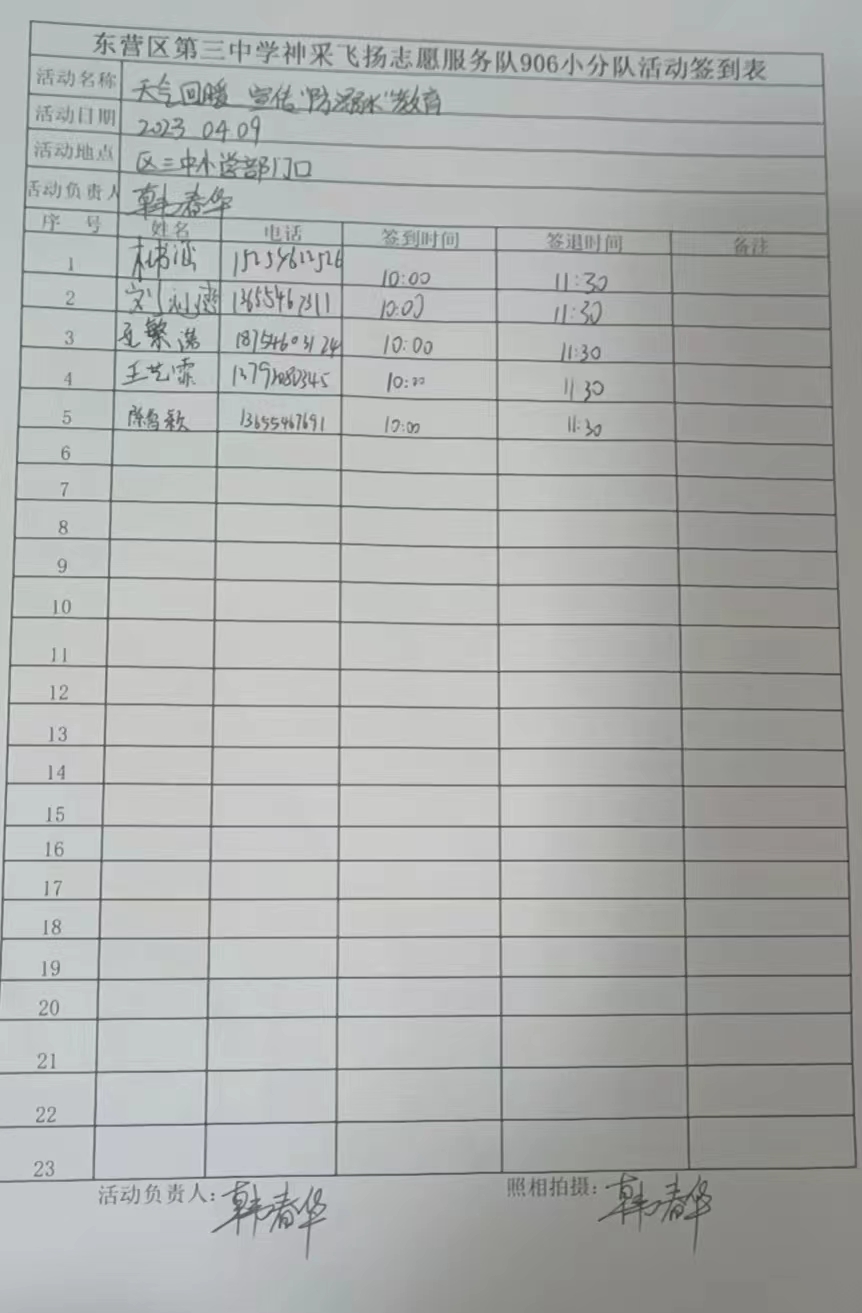 东营区第三中学神采飞扬志愿服务队906小分队活动签到表
活动名称 天气回暖 宣传"防溺水"教育
活动日期 2023 04 09
活动地点 区三中小学部门口
活动负责人 韩春华
序 号 姓名 电话 签到时间 签退时间 备注
1 10:00 11:30
2 13655467311 10:00 11:30
3 18754603124 10:00 11:30
4 王艺霏 10:00 11 30
5 陈雪颖 13655467691 10:00 11:30
6
7
8
9
10
11
12
13
14
15
16
17
18
19
20
21
22
23
活动负责人：韩春华 照相拍摄：韩春华